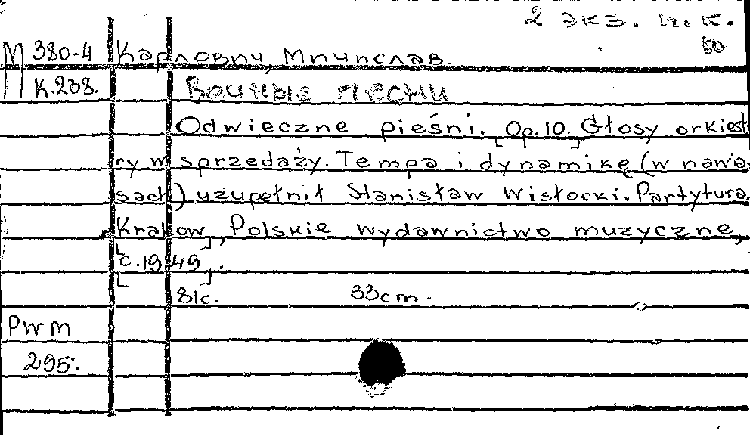 2 экз.
50
М 380-4 Карлович, Мечислав.
К.238. Вечные песни
Odwieczne pieśni. Op.10. Głosy orkiest
ry w sprzedaży. Tempa i dynamikę (w nawia
sach) uzupełnił Stanisław Wisłocki. Partytura.
Kraków, Polskie wydawnictwo muzyczne,
[c.1949].
81c. 33cm.
PWM
295.